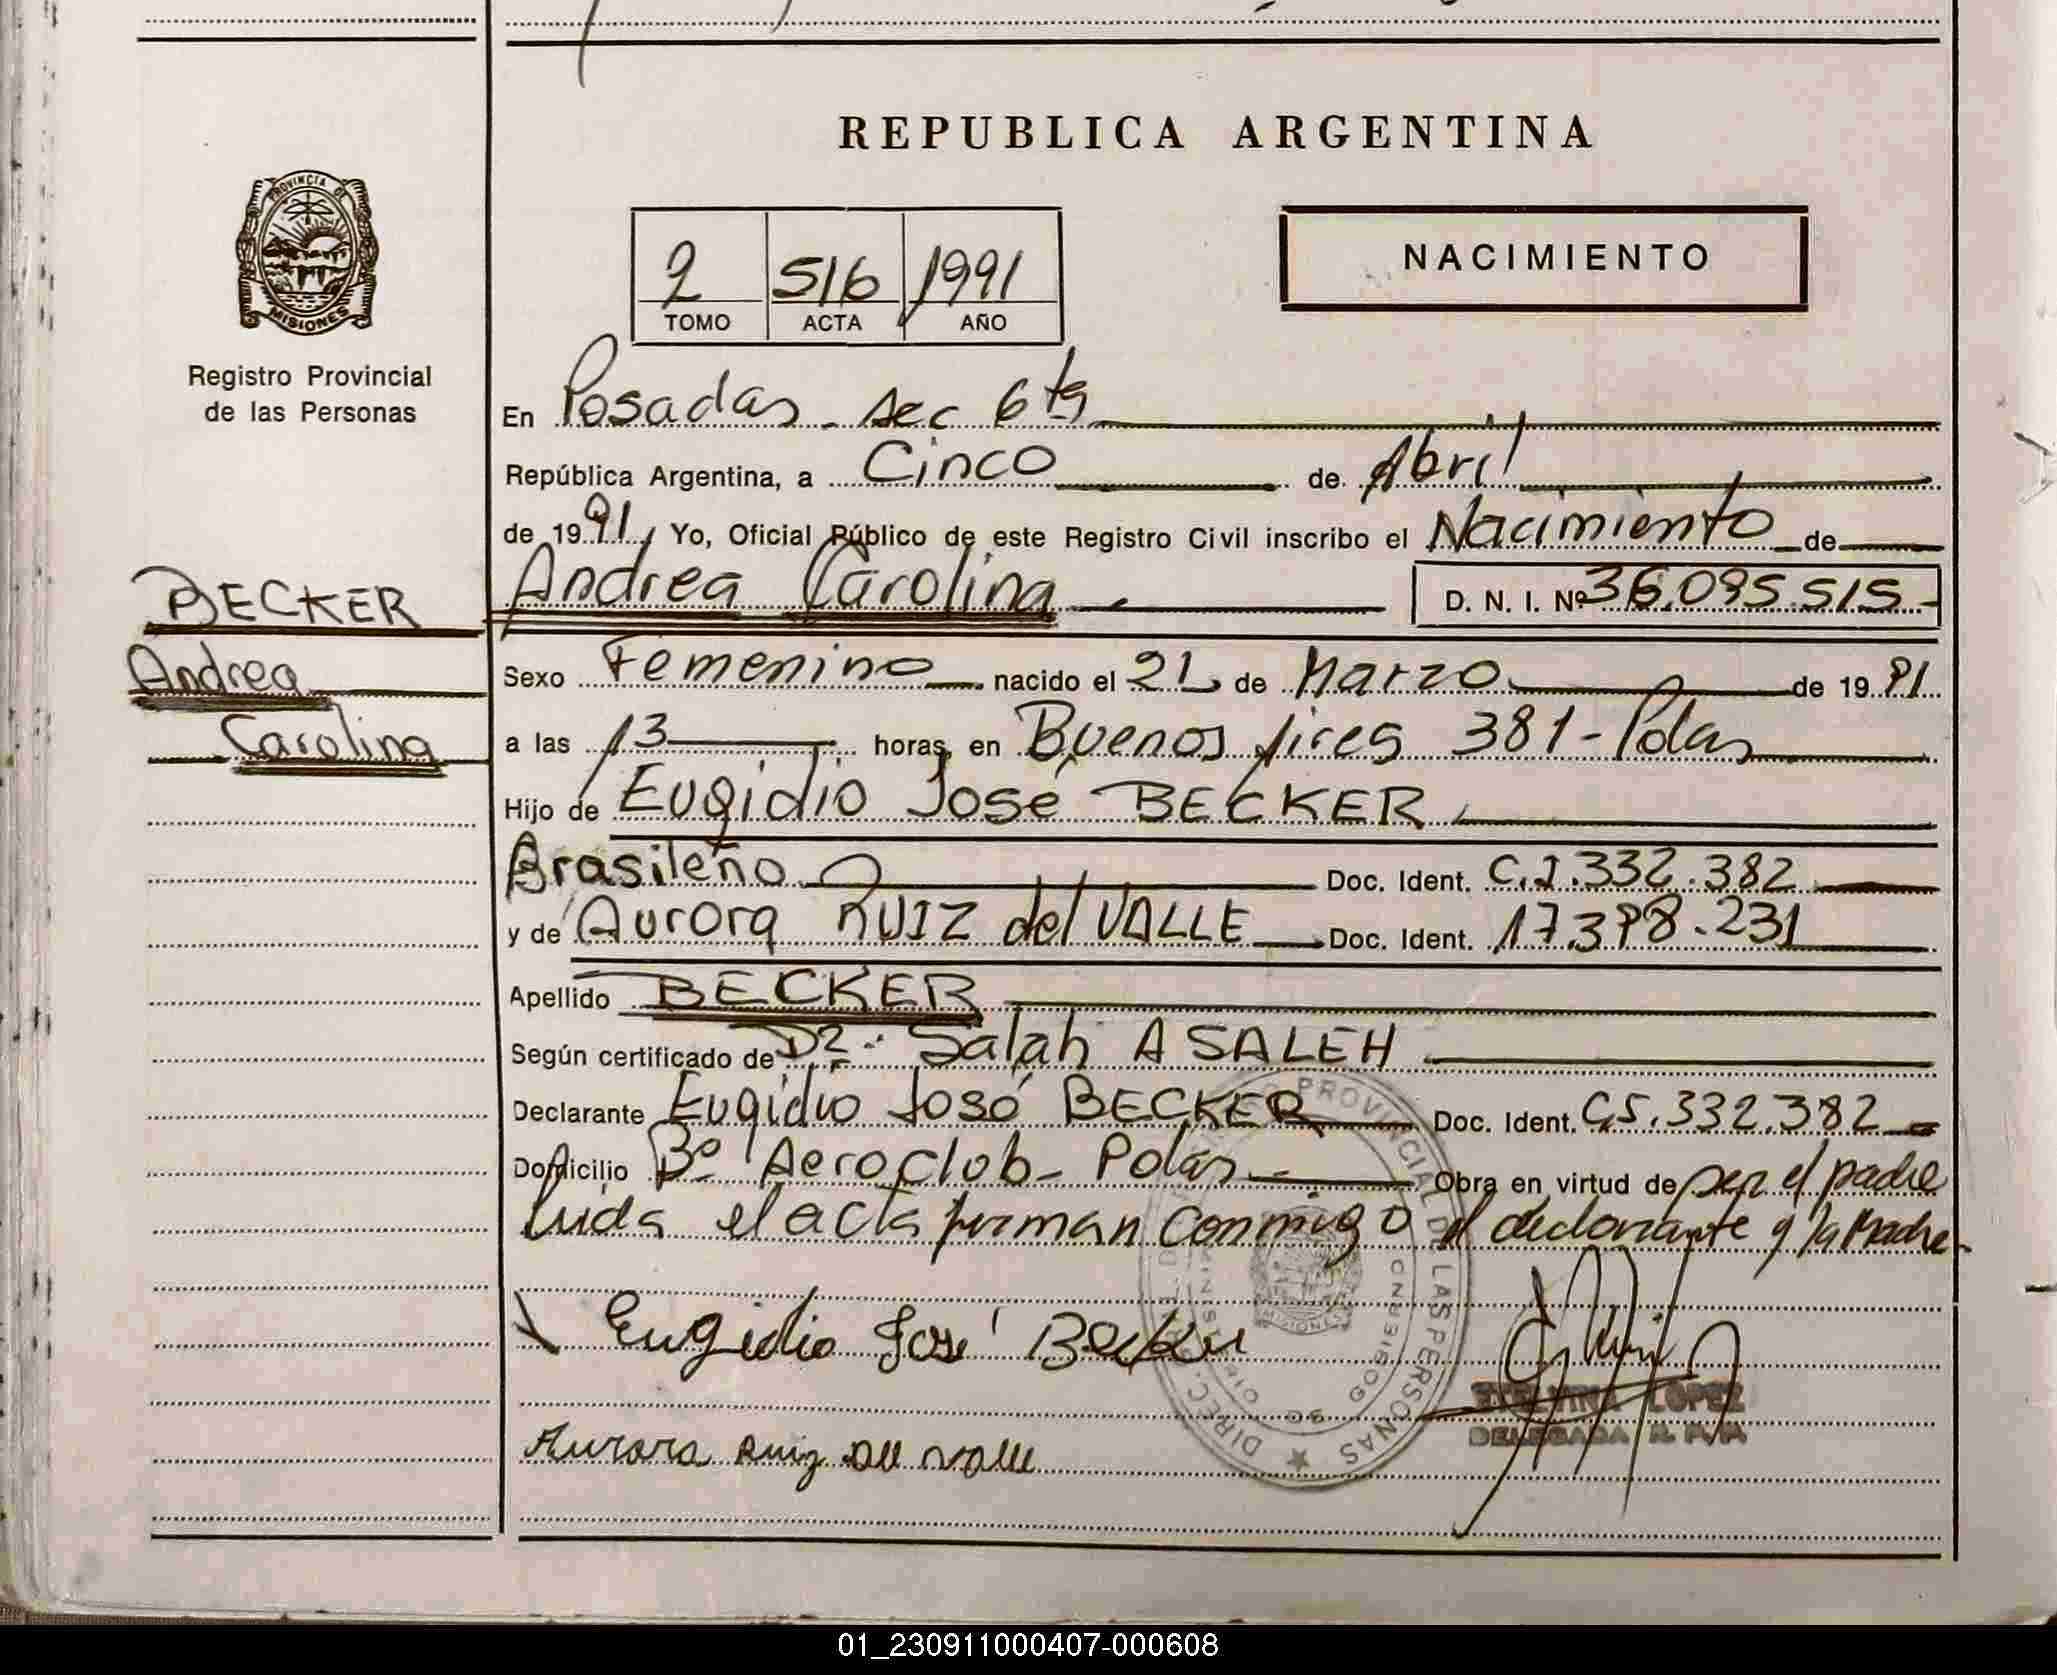 REPUBLICA ARGENTINA
PROVINCIA DE
MISIONES
Registro Provincial
de las Personas
2 516 1991
TOMO ACTA AÑO
NACIMIENTO
En Posadas - sec 6ta
República Argentina, a Cinco de Abril
de 1991, Yo, Oficial Público de este Registro Civil inscribo el Nacimiento de
BECKER
Andrea
Carolina
Andrea Carolina D. N. I. Nº 36.095.515-
Sexo Femenino nacido el 21 de Marzo de 1991
a las 13 horas, en Buenos Aires 381 - Pdas
Hijo de Eugidio José BECKER
Brasileño Doc. Ident. C.I.332.382
y de Aurora RUIZ del VALLE Doc. Ident. 17.398.231
Apellido BECKER
Según certificado de Dr. Salah A SALEH
Declarante Eugidio José BECKER Doc. Ident. C.I.332.382
Domicilio Bº Aeroclub - Pdas Obra en virtud de ser el padre
Leída el acta firman conmigo el declarante y la Madre-
Eugidio José Becker
Aurora Ruiz del Valle
DIREC. PROVINCIAL DE LAS PERSONAS
MINISTERIO DE GOBIERNO
MISIONES
ETELVINA LOPEZ
DELEGADA R. P. P.
01_230911000407-000608